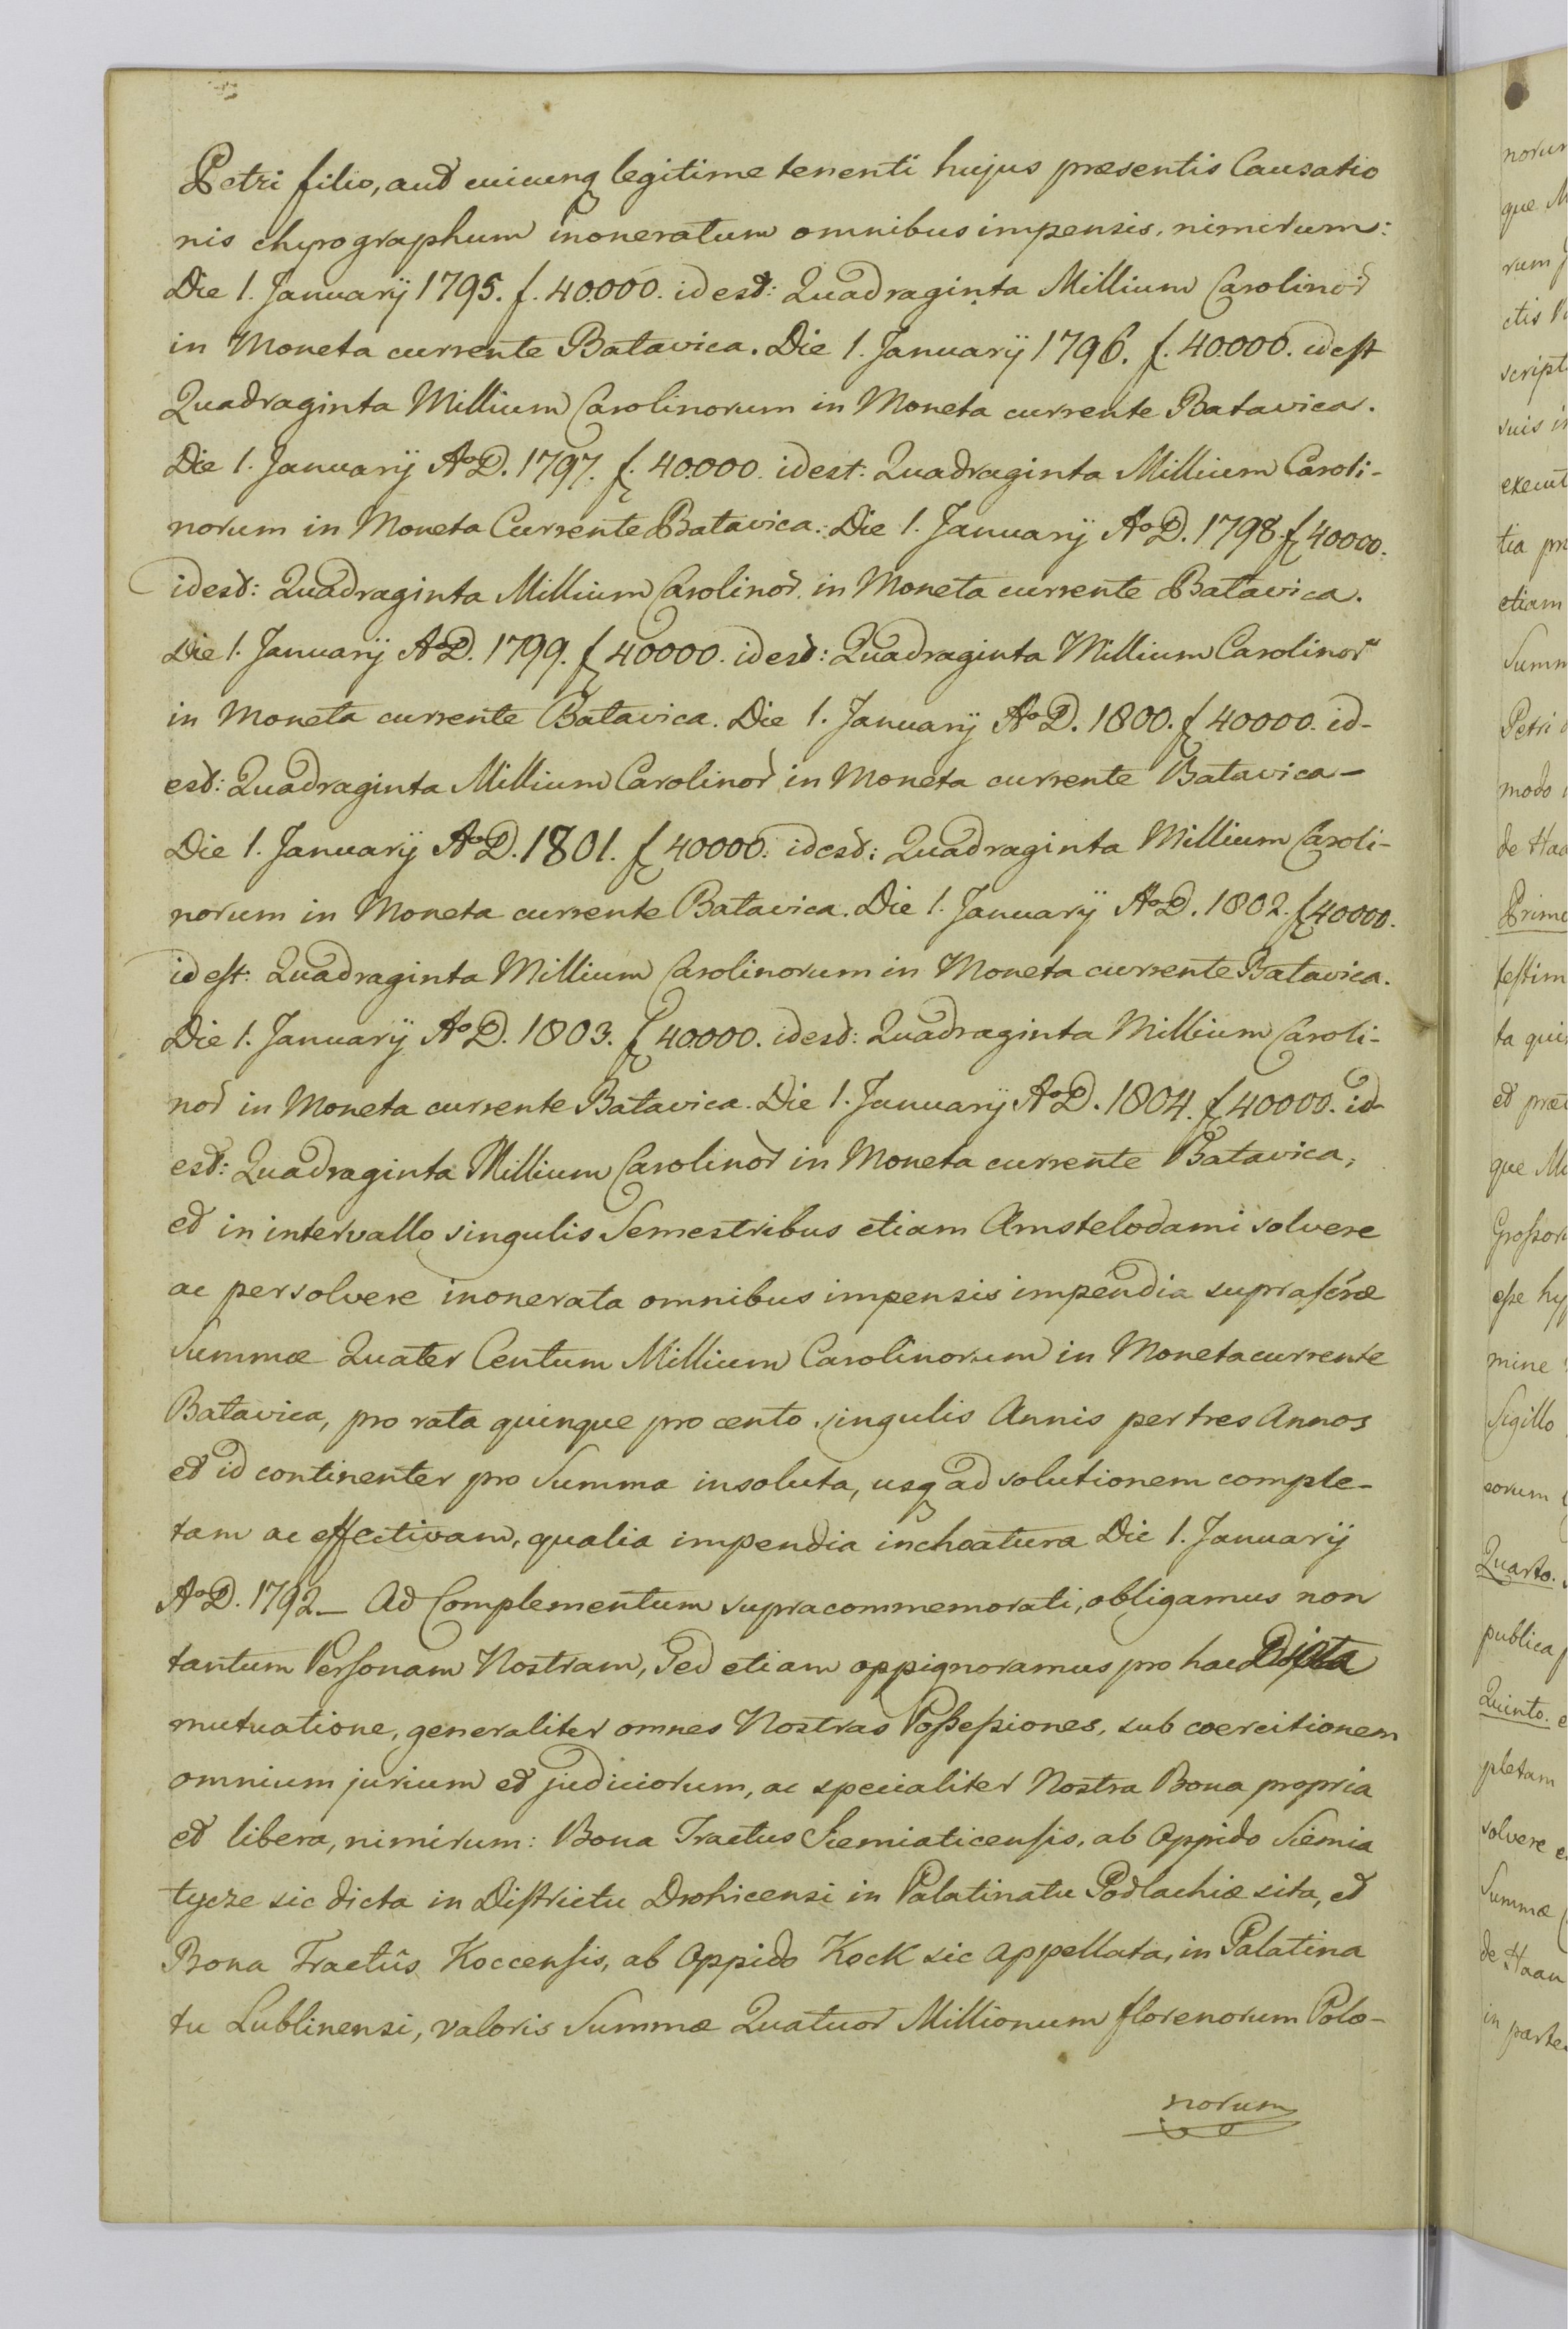 Petri filio, aut cuicunq legitime tenenti hujus præsentis Causatio
nis chyrographum inoneratum omnibus impensis, nimirum:
Die 1. Januarÿ 1795. f. 40000. id est: Quadraginta Millium Carolinor
in Moneta currente Batavica. Die 1. Januarÿ 1796. f. 40.000. id est
Quadraginta Millium Carolinorum in Moneta currente Batavica.
Die 1. Januarÿ Ao D. 1797. f. 40.000. id est: Quadraginta Millium Caroli-
norum in Moneta Currente Batavica. Die 1. Januarÿ Ao D. 1798. f 40000.
id est: Quadraginta Millium Carolinor. in Moneta currente Batavica.
Die 1. Januarÿ Ao D. 1799. f 40000. id est: Quadraginta Millium Carolinor
in Moneta currente Batavica. Die 1. Januarÿ Ao D. 1800. f 40000. id-
est: Quadraginta Millium Carolinor in Moneta currente Batavica-
Die 1. Januarÿ Ao D. 1801. f 40000. id est: Quadraginta Millium Caroli-
norum in Moneta currente Batavica. Die 1. Januarÿ Ao D. 1802. f 40000.
id est: Quadraginta Millium Carolinorum in Moneta currente Batavica.
Die 1. Januarÿ Ao D. 1803. f 40.000. id est: Quadraginta Millium Caroli-
nor in Moneta currente Batavica. Die 1. Januarÿ Ao D. 1804. f 40000. id-
est: Quadraginta Millium Carolinor in Moneta currente Batavica;
et in intervallo singulis Semestribus etiam Amstelodami solvere
ac persolvere inonerata omnibus impensis impendia suprascræ
Summæ Quater Centum Millium Carolinorum in Moneta currente
Batavica, pro rata quinque pro cento singulis Annis per tres Annos
et id continenter pro Summa insoluta, usq ad solutionem comple-
tam ac effectivam, qualia impendia inchoatura Die 1. Januarÿ
Ao D. 1792 - Ad Complementum supracommemorati, obligamus non
tantum Personam Nostram, Sed etiam oppignoramus pro hac Dicta
mutuatione, generaliter omnes Nostras Possessiones, sub coercitionem
omnium jurium et judiciorum, ac specialiter Nostra Bona propria
et libera, nimirum: Bona Tractus Siemiaticensis, ab Oppido Siemia
tycze sic dicta in Districtu Drohicensi in Palatinatu Podlachiæ sita, et
Bona Tractûs Koccensis, ab Oppido Kock sic Appellata, in Palatina
tu Lublinensi, valoris Summæ Quatuor Millionum florenorum Polo-
norum
norum
que M
rum
ctis
scripto
suis in
execut
tia pr
etiam
Summ
Petri
modo
de Haa
Primo
testim
ta qui
et præ
que Mo
Grossor
esse hy
mine
Sigillo
sorum
Quarto.
publica
Quinto.
pletam
solvere
Summæ
de Haan
in partes